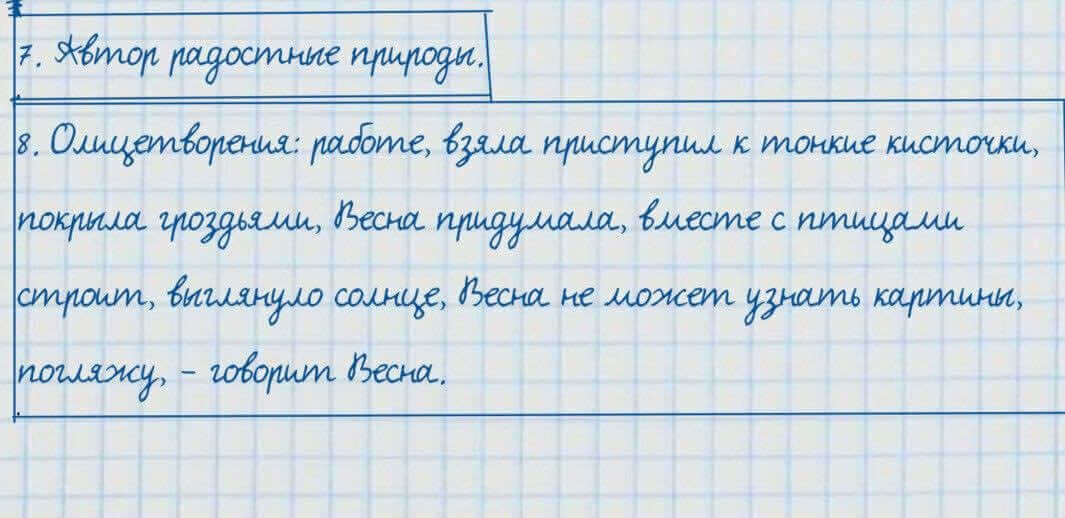 7. Автор радостные природы.
8. Олицетворения: работе, взяла приступил к тонкие кисточки,
покрыла гроздьями, Весна придумала, вместе с птицами
строит, выглянуло солнце, Весна не может узнать картины,
погляжу, – говорит Весна.